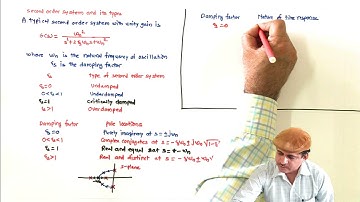 second order system and its types
A typical second order system with unity gain is
G(s) = ωn² / s²+2ξωns+ωn²
where ωn is the natural frequency of oscillation
ξ is the damping factor
ξ Type of second order system
ξ=0 Undamped
0<ξ<1 Underdamped
ξ=1 Critically damped
ξ>1 Overdamped
Damping factor Pole locations
ξ=0 Purely imaginary at s=±jωn
0<ξ<1 Complex conjugates at s=-ξωn±jωn√1-ξ²
ξ=1 Real and equal at s=-ωn
ξ>1 Real and distinct at s=-ξωn±ωn√
s-plane
Damping factor Nature of time response
ξ=0